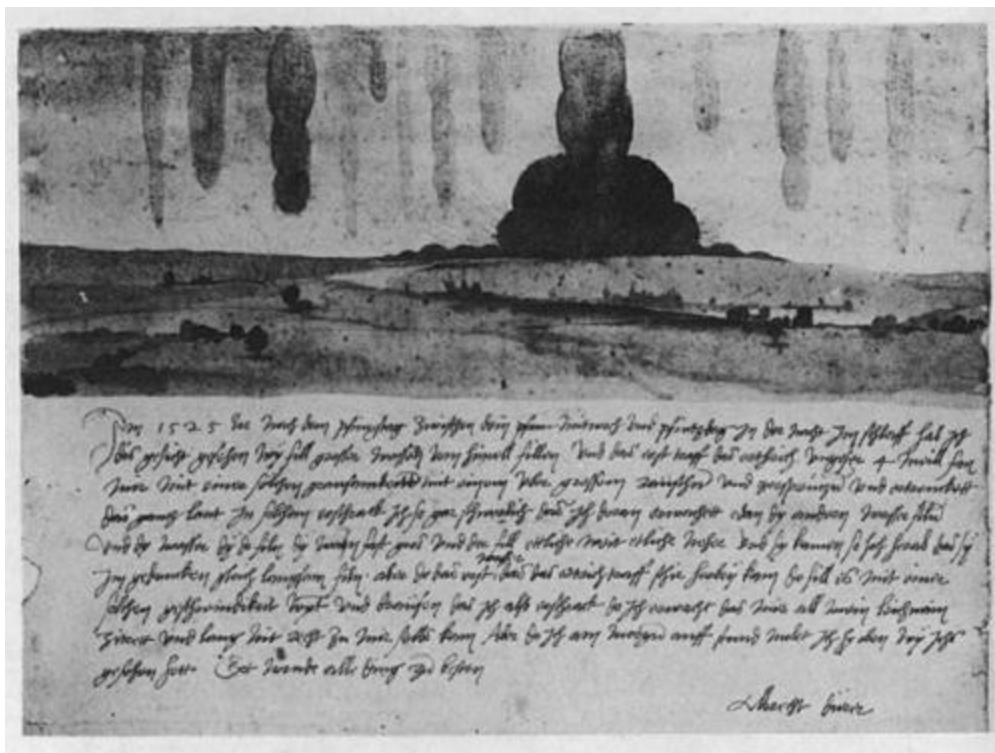 Im 1525 Jor nach dem pfinxtag zwischen dem mitwoch und pfintzdag in der nacht im schlaff hab ich
dis gesicht gesehen wy fill grosser wasser vom himell fillen Und das erst traff das erthrich ungefer 4 meill fan
mir mit einer solchen grausamkeitt mit einem uber grossem raüschn und zersprützn und ertrenckett
das gantz lant In solchem erschrack ich so gar schwerlich das ich doran erwachett e dan dy andern wasser filn
Und dy wasser dy do filn dy warn fast gros und der fill ettliche weit etliche neher und sy kamen so hoch herab das sy
im gedancken gleich langsam filn. aber do das erst wasser das das ertrich traff schir herbey kam do fill es mit einer
solchen geschwindikeit wynt und braüsen das ich also erschrack do ich erwacht das mir all mein leichnam
zitrett und lang nit recht zu mir selbs kam Aber do ich am morgen auff stund molet ich hy oben wy ichs
gesehen hett. Got wende alle ding zu besten
Albrecht Dürer